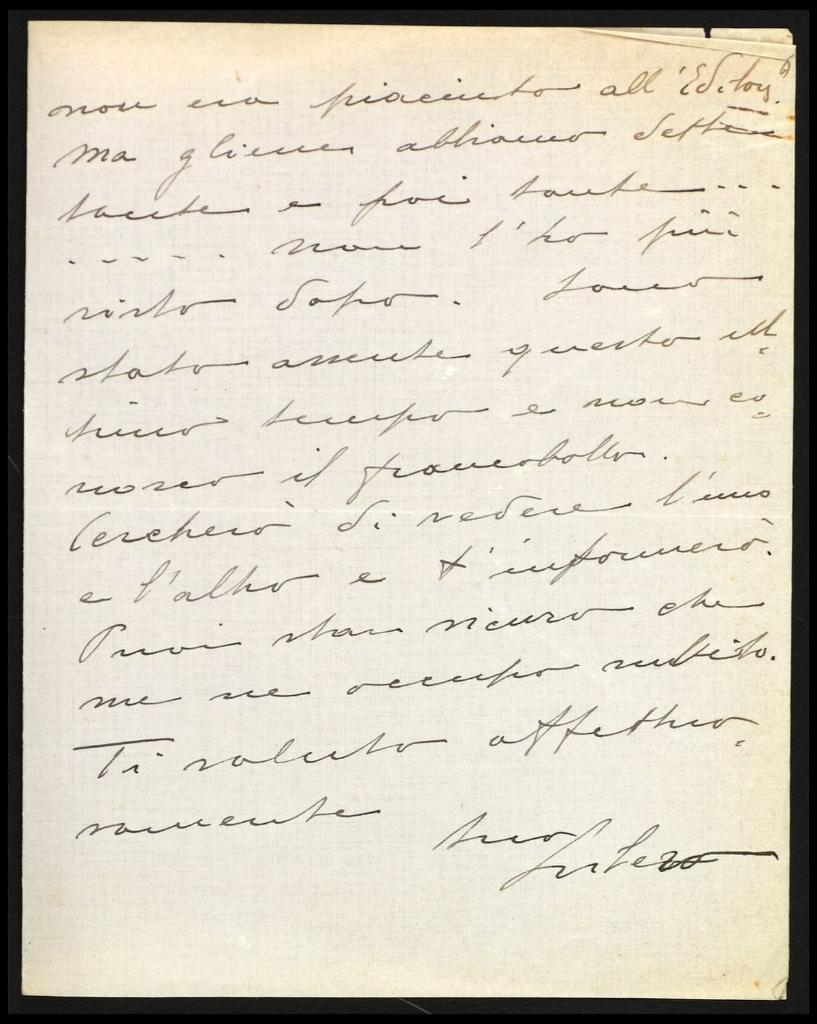 non era piaciuto all'Editor.
Ma gliene abbiamo dette
tante e poi tante ...
..... non l'ho più
visto dopo. Sono
stato assente questo ul=
timo tempo e non co=
nosco il francobollo.
Cercherò di vedere l'uno
e l'altro e t'informerò.
Puoi star sicuro che
me ne occupo subito.
Ti saluto affettuo=
samente
tuo